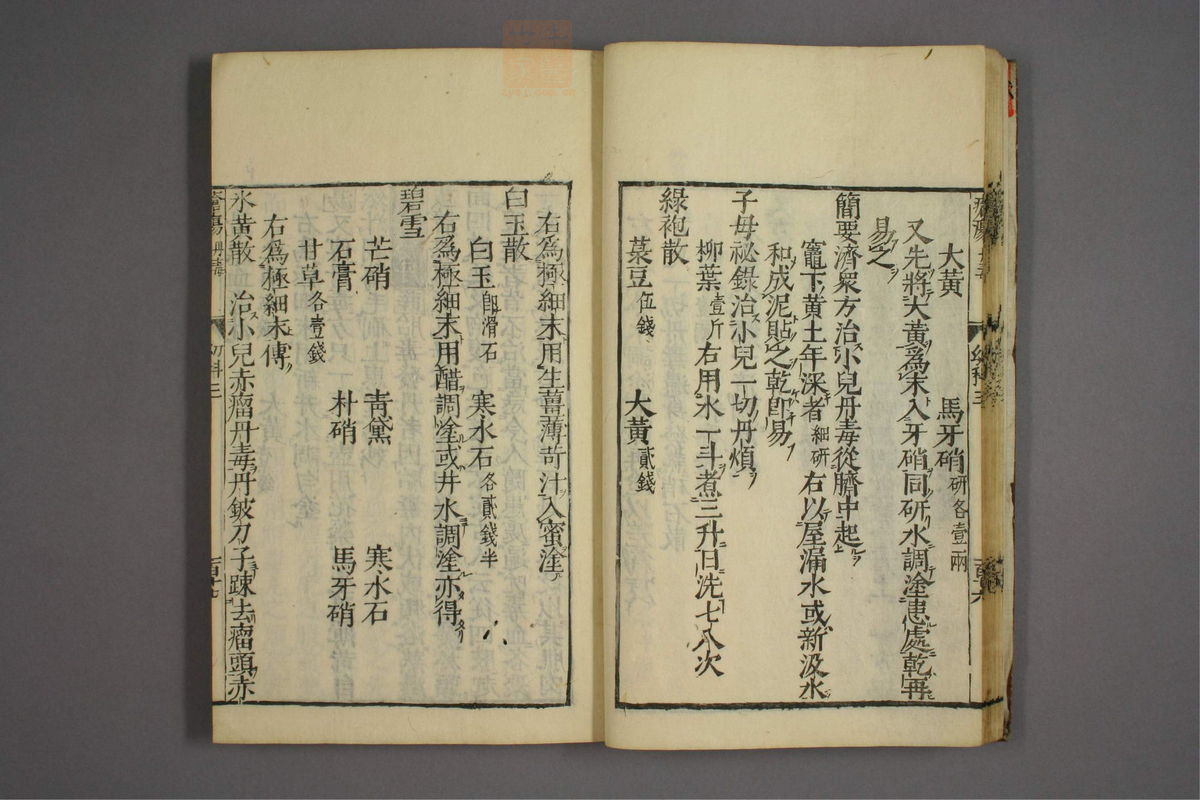 大黃 馬牙硝研各壹兩
又先將大黃爲末入牙硝同研水調塗患處乾再
易之
簡要濟衆方治小兒丹毒從臍中起
竈下黃土年深者細研右以屋漏水或新汲水
和成泥貼之乾卽易
子母祕錄治小兒一切丹煩
柳葉壹斤右用水一斗煮三升日洗七八次
綠袍散
菉豆伍錢 大黃貳錢
右爲極細末用生薑薄苛汁入蜜塗
白玉散
白玉卽滑石 寒水石各貳錢半
右爲極細末用醋調塗或井水調塗亦得
碧雪
芒硝 靑黛 寒水石
石膏 朴硝 馬牙硝
甘草各壹錢
右爲極細末傅
氷黃散 治小兒赤瘤丹毒丹鈹刀子踈去瘤頭赤